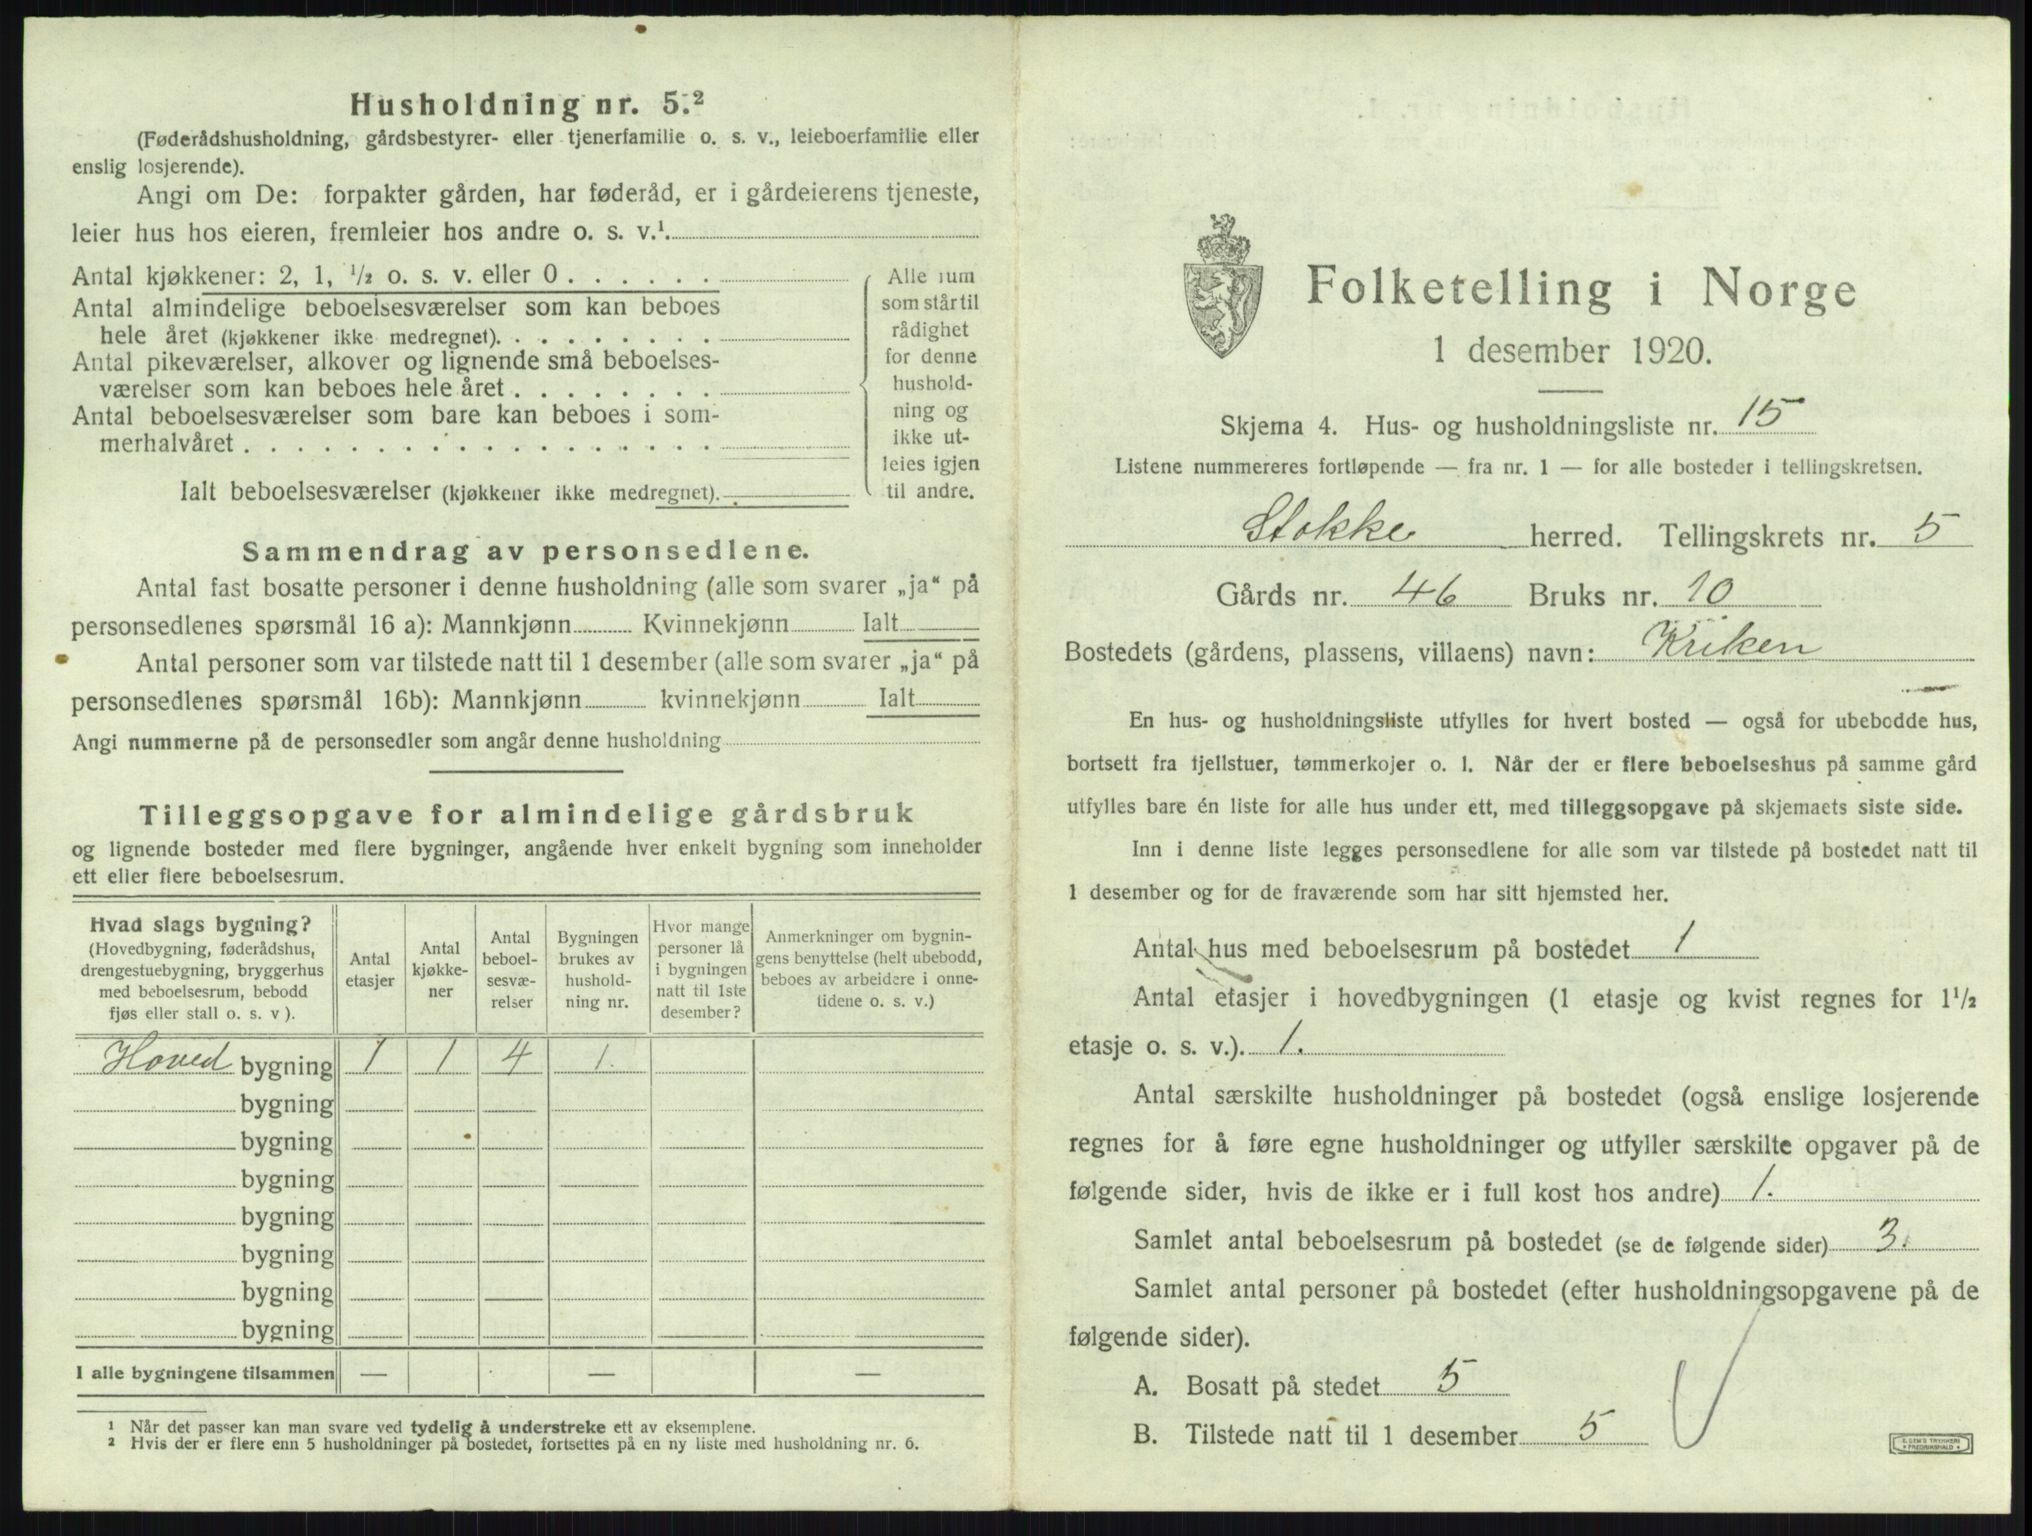 Husholdning nr. 5.²
(Føderådshusholdning, gårdsbestyrer- eller tjenerfamilie o. s. v., leieboerfamilie eller
enslig losjerende).
Angi om De: forpakter gården, har føderåd, er i gårdeierens tjeneste,
leier hus hos eieren, fremleier hos andre o. s. v.¹.
Antal kjøkkener: 2, 1, ½ o. s. v. eller 0 . . . . . .
Antal almindelige beboelsesværelser som kan beboes
hele året (kjøkkener ikke medregnet). . . . . . . . .
Antal pikeværelser, alkover og lignende små beboelses-
værelser som kan beboes hele året . . . . . . . .
Antal beboelsesværelser som bare kan beboes i som-
merhalvåret . . . . . . . . . . . . . . . . . .
Ialt beboelsesværelser (kjøkkener ikke medregnet).
Alle rum
som står til
rådighet
for denne
hushold-
ning og
ikke ut-
leies igjen
til andre.
Sammendrag av personsedlene.
Antal fast bosatte personer i denne husholdning (alle som svarer „ja“ på
personsedlenes spørsmål 16 a): Mannkjønn Kvinnekjønn Ialt
Antal personer som var tilstede natt til 1 desember (alle som svarer „ja“ på
personsedlenes spørsmål 16b): Mannkjønn kvinnekjønn Ialt
Angi nummerne på de personsedler som angår denne husholdning
Tilleggsopgave for almindelige gårdsbruk
og lignende bosteder med flere bygninger, angående hver enkelt bygning som inneholder
ett eller flere beboelsesrum.
Hvad slags bygning?
(Hovedbygning, føderådshus,
drengestuebygning, bryggerhus
med beboelsesrum, bebodd
fjøs eller stall o. s. v ).
Antal
etasjer
Antal
kjøkke-
ner
Antal
beboel-
sesvæ-
relser
Bygningen
brukes av
hushold-
ning nr.
Hvor mange
personer lå
i bygningen
natt til 1ste
desember?
Anmerkninger om bygnin-
gens benyttelse (helt ubebodd,
beboes av arbeidere i onne-
tidene o. s. v.)
Hoved bygning 1 1 4 1.
bygning
bygning
bygning
bygning
bygning
bygning
bygning
I alle bygningene tilsammen — — —
¹ Når det passer kan man svare ved tydelig å understreke ett av eksemplene.
² Hvis der er flere enn 5 husholdninger på bostedet, fortsettes på en ny liste med husholdning nr. 6.
Folketelling i Norge
1 desember 1920.
Skjema 4. Hus- og husholdningsliste nr. 15
Listene nummereres fortløpende — fra nr. 1 — for alle bosteder i tellingskretsen.
Stokke herred. Tellingskrets nr. 5
Gårds nr. 46 Bruks nr. 10
Bostedets (gårdens, plassens, villaens) navn: Kriken
En hus- og husholdningsliste utfylles for hvert bosted — også for ubebodde hus,
bortsett fra fjellstuer, tømmerkojer o. l. Når der er flere beboelseshus på samme gård
utfylles bare én liste for alle hus under ett, med tilleggsopgave på skjemaets siste side.
Inn i denne liste legges personsedlene for alle som var tilstede på bostedet natt til
1 desember og for de fraværende som har sitt hjemsted her.
Antal hus med beboelsesrum på bostedet 1
Antal etasjer i hovedbygningen (1 etasje og kvist regnes for 1½
etasje o. s. v.). 1.
Antal særskilte husholdninger på bostedet (også enslige losjerende
regnes for å føre egne husholdninger og utfyller særskilte opgaver på de
følgende sider, hvis de ikke er i full kost hos andre) 1.
Samlet antal beboelsesrum på bostedet (se de følgende sider) 3.
Samlet antal personer på bostedet (efter husholdningsopgavene på de
følgende sider).
A. Bosatt på stedet 5
B. Tilstede natt til 1 desember 5